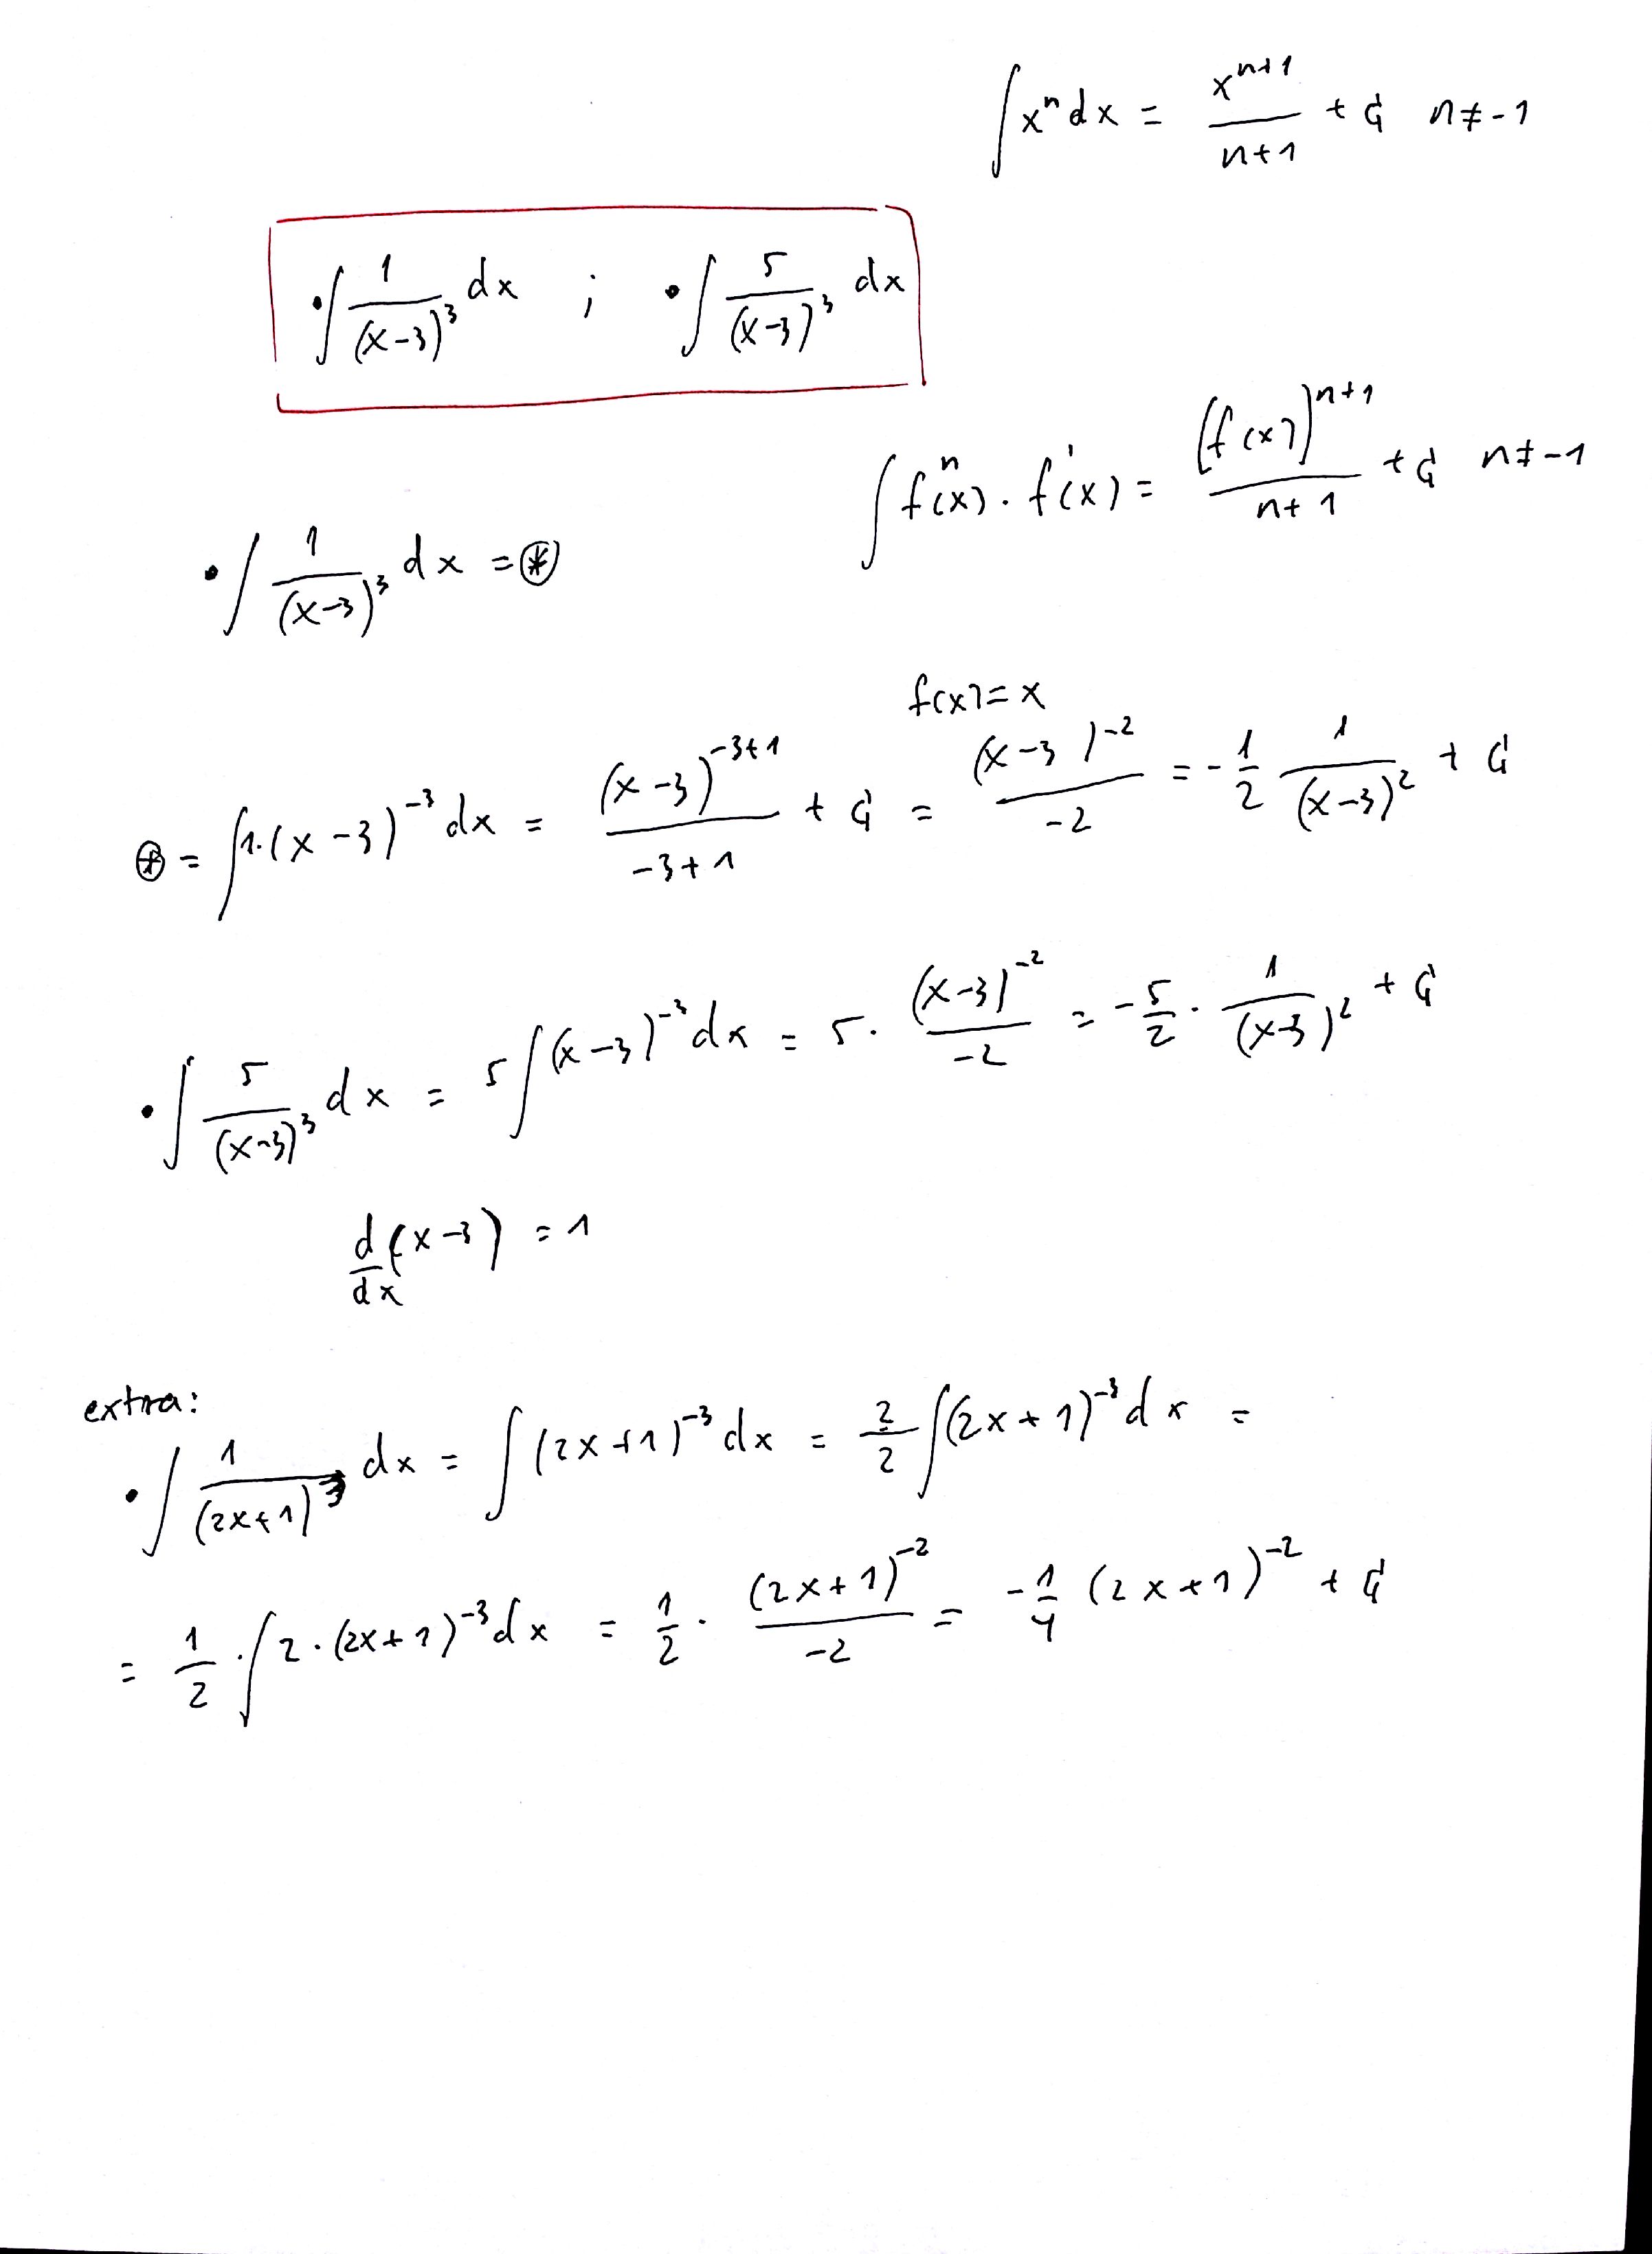 ∫ xⁿ dx = xⁿ⁺¹/(n+1) + C n ≠ -1
• ∫ 1/(x-3)³ dx ; • ∫ 5/(x-3)³ dx
∫ fⁿ(x) · f'(x) = (f(x))ⁿ⁺¹/(n+1) + C n ≠ -1
• ∫ 1/(x-3)³ dx = ⊛
f(x) = x
⊛ = ∫ 1·(x-3)⁻³ dx = (x-3)⁻³⁺¹/(-3+1) + C = (x-3)⁻²/-2 = -1/2 1/(x-3)² + C
• ∫ 5/(x-3)³ dx = 5 ∫ (x-3)⁻³ dx = 5 · (x-3)⁻²/-2 = -5/2 · 1/(x-3)² + C
d/dx (x-3) = 1
extra:
• ∫ 1/(2x+1)³ dx = ∫ (2x+1)⁻³ dx = 2/2 ∫ (2x+1)⁻³ dx =
= 1/2 · ∫ 2·(2x+1)⁻³ dx = 1/2 · (2x+1)⁻²/-2 = -1/4 (2x+1)⁻² + C